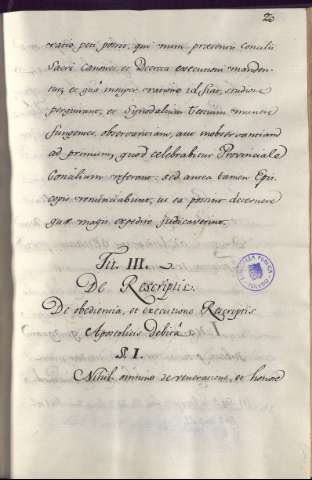 ratio peti potest, qui num præsentis Concilii
Sacri Canones, et Decreta executioni manden-
tur, et quo magis minime id fiat, studiose
perquirant, et Synodalium Testium munere
fungentes, observantiam, aut inobservantiam
ad primum, quod celebrabitur Provinciale
Concilium referant: sed antea tamen Epis-
copis renuntiabunt, ut ea possint decernere
quæ magis expedire judicaverint.
Tit. III.
De Rescriptis.
De obedientia, et executione Rescriptis
Apostolicis debita
§. I.
Nihil omnino de veneratione, et honore